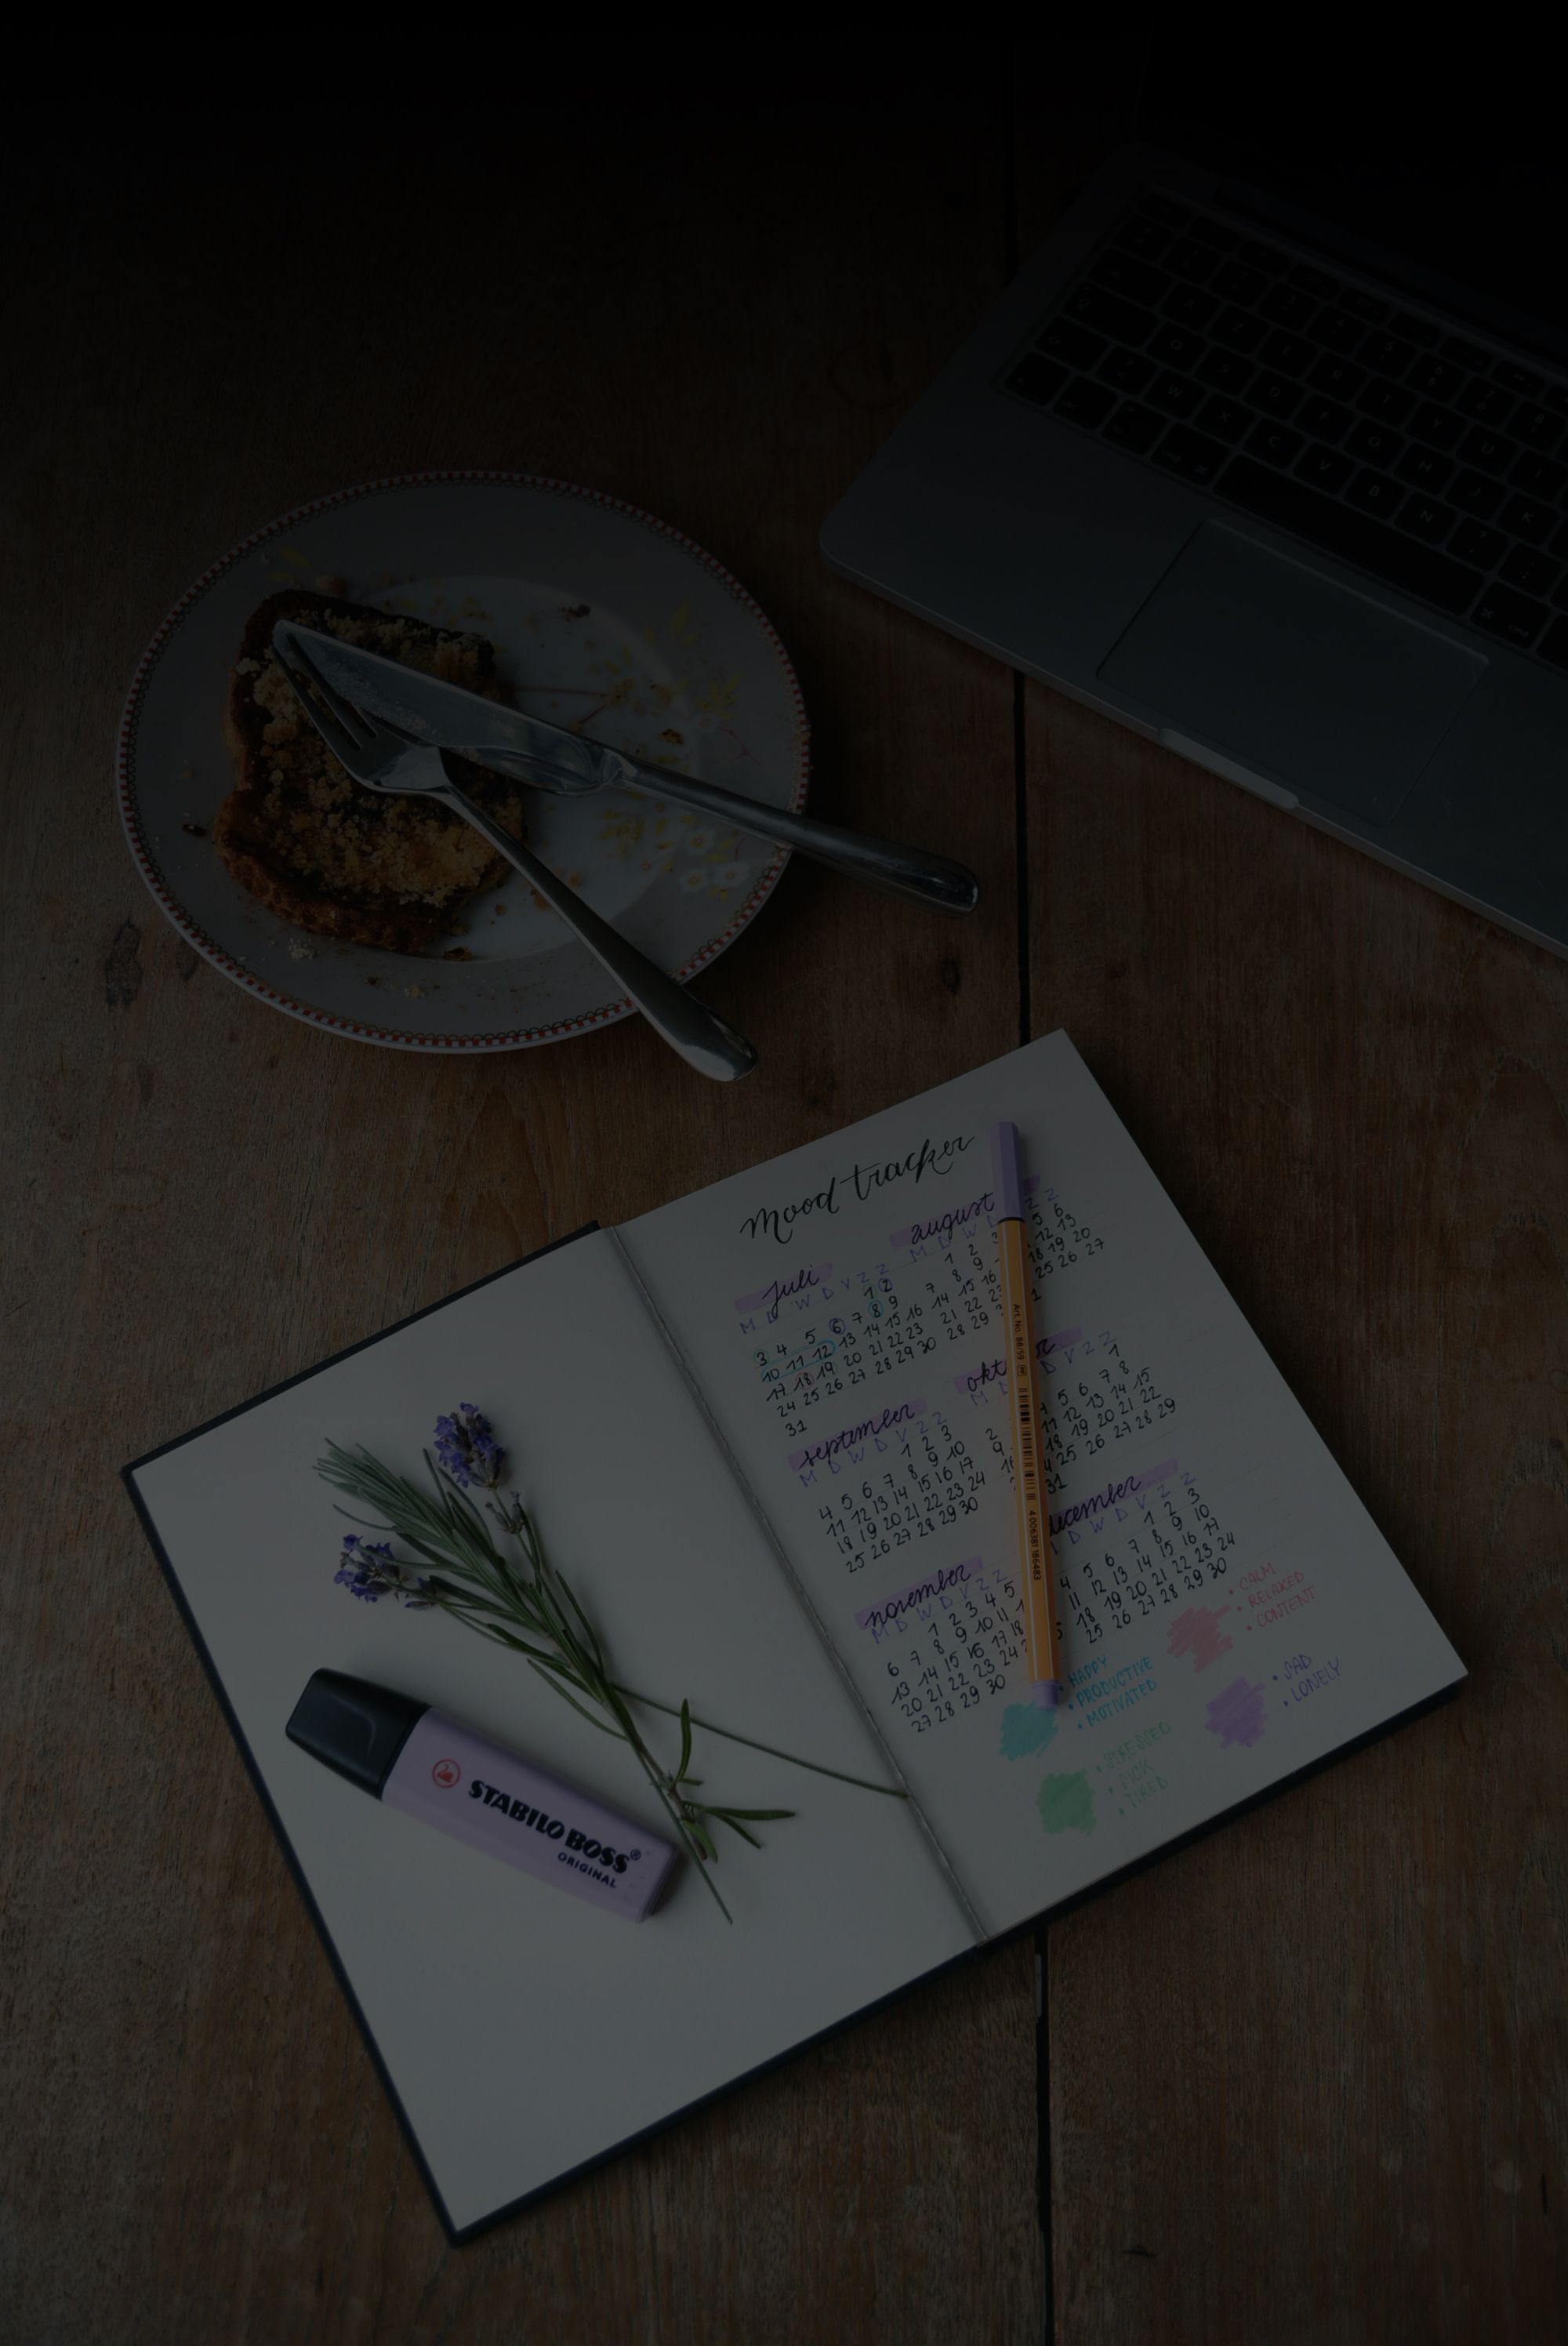 mood tracker
juli
M D W D V Z Z
1 2
3 4 5 6 7 8 9
10 11 12 13 14 15 16
17 18 19 20 21 22 23
24 25 26 27 28 29 30
31
august
M D W D Z Z
1 2 5 6
7 8 9 12 13
14 15 16 18 19 20
21 22 23 25 26 27
28 29
september
M D W D V Z Z
1 2 3
4 5 6 7 8 9 10
11 12 13 14 15 16 17
18 19 20 21 22 23 24
25 26 27 28 29 30
M D V Z Z
1
2 5 6 7 8
9 11 12 13 14 15
16 18 19 20 21 22
25 26 27 28 29
31
november
M D W D V Z Z
1 2 3 4 5
6 7 8 9 10 11
13 14 15 16 17 18
20 21 22 23 24
27 28 29 30
december
D W D V Z Z
1 2 3
4 5 6 7 8 9 10
11 12 13 14 15 16 17
18 19 20 21 22 23 24
25 26 27 28 29 30
• CALM
• RELAXED
• CONTENT
• HAPPY
• PRODUCTIVE
• MOTIVATED
• SAD
• LONELY
• STRESSED
• SICK
• TIRED
Art. No. 88/59
4 006381 186483
STABILO BOSS®
ORIGINAL
A
Z
Q S D F G H J K
W X C V B N
E R T Y U I
cmd ⌘
⌘ cmd